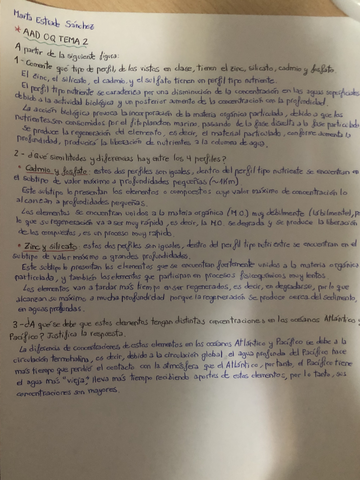 Marta Estudo Sánchez
* AAD OQ TEMA 2
A partir de la siguiente figura:
1- Comente qué tipo de perfil, de los vistos en clase, tienen el zinc, silicato, cadmio y fosfato.
El zinc, el silicato, el cadmio y el sulfato tienen un perfil tipo nutriente.
El perfil tipo nutriente se caracteriza por una disminución de la concentración en las aguas superficiales
debido a la actividad biológica y un posterior aumento de la concentración con la profundidad.
La acción biológica provoca la incorporación de la materia orgánica particulada, debido a que los
nutrientes son consumidos por el fitoplancton marino, pasando de la fase disuelta a la fase particulada
Se produce la regeneración del elemento, es decir, el material particulado, conforme aumenta la
profundidad, produce la liberación de nutrientes a la columna de agua.
2- ¿Qué similitudes y diferencias hay entre los 4 perfiles?
• Cadmio y fosfato: estos dos perfiles son iguales, dentro del perfil tipo nutriente se encuentran en
el subtipo de valor máximo a profundidades pequeñas (~1Km)
Este subtipo lo presentan los elementos o compuestos cuyo valor máximo de concentración lo
alcanzan a profundidades pequeñas.
Los elementos se encuentran unidos a la materia orgánica (M.O.) muy débilmente (lábilmente), por
lo que su regeneración va a ser muy rápida, es decir, la M.O. se degrada y se produce la liberación
de los compuestos, es un proceso muy rápido.
• Zinc y silicato: estos dos perfiles son iguales, dentro del perfil tipo nutriente se encuentran en el
subtipo de valor máximo a grandes profundidades.
Este subtipo lo presentan los elementos que se encuentran fuertemente unidos a la materia orgánica
particulada, y también los elementos que participan en procesos fisicoquímicos muy lentos.
Los elementos van a tardar más tiempo en ser regenerados, es decir, en degradarse, por lo que
alcanzan su máximo a mucha profundidad porque la regeneración se produce cerca del sedimento,
en aguas profundas.
3- ¿A qué se debe que estos elementos tengan distintas concentraciones en los océanos Atlántico y
Pacífico? Justifica la respuesta.
La diferencia de concentraciones de estos elementos en los océanos Atlántico y Pacífico se debe a la
circulación termohalina, es decir, debido a la circulación global, el agua profunda del Pacífico hace
más tiempo que perdió el contacto con la atmósfera que el Atlántico, por tanto, el Pacífico tiene
el agua más "vieja", lleva más tiempo recibiendo aportes de estos elementos, por lo tanto, sus
concentraciones son mayores.